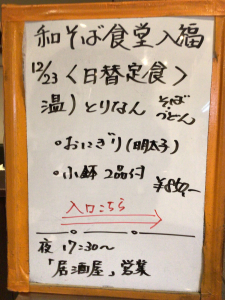 和そば食堂入福
12/23 〈日替定食〉
温)とりなん そば うどん
・おにぎり(明太子)
・小鉢 2品付
入口こちら
夜 17:30〜
「居酒屋」営業